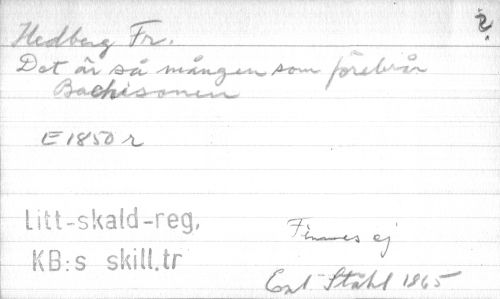 ?
Hedberg Fr.
Det är så mången som förebrår
Bachisonen
E 1850 r
Litt-skald-reg.
KB:s skill.tr
Finnes ej
Carl Ståhl 1865